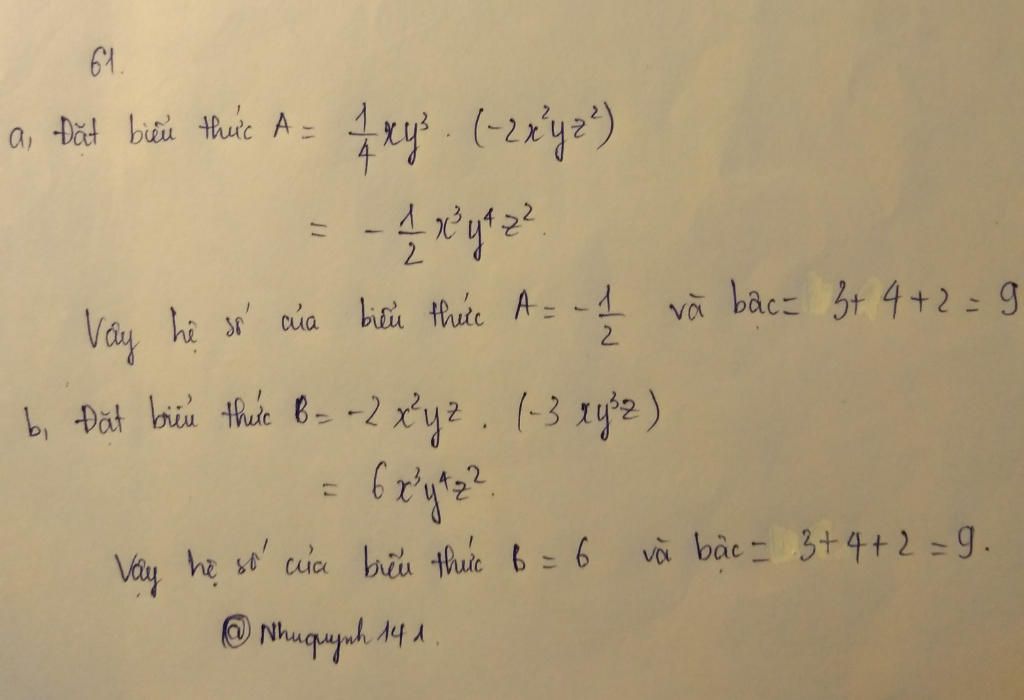 61.
a, Đặt biểu thức A = \frac{1}{4}xy³ . (-2x²yz²)
= - \frac{1}{2}x³y⁴z².
Vây hệ số của biểu thức A = - \frac{1}{2} và bậc = 3+ 4 + 2 = 9
b, Đặt biểu thức B = -2 x²yz . (-3 xy³z)
= 6x³y⁴z².
Vậy hệ số của biểu thức B = 6 và bậc = 3+4+2 = 9.
@Nhuquynh 141.